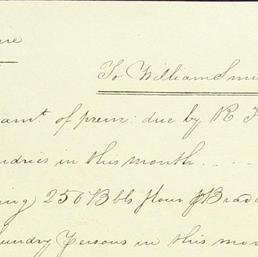 To William Smi
amt of prem: due by R
undries in this month
ing 250 Bbls flour
undry Persons in this mon